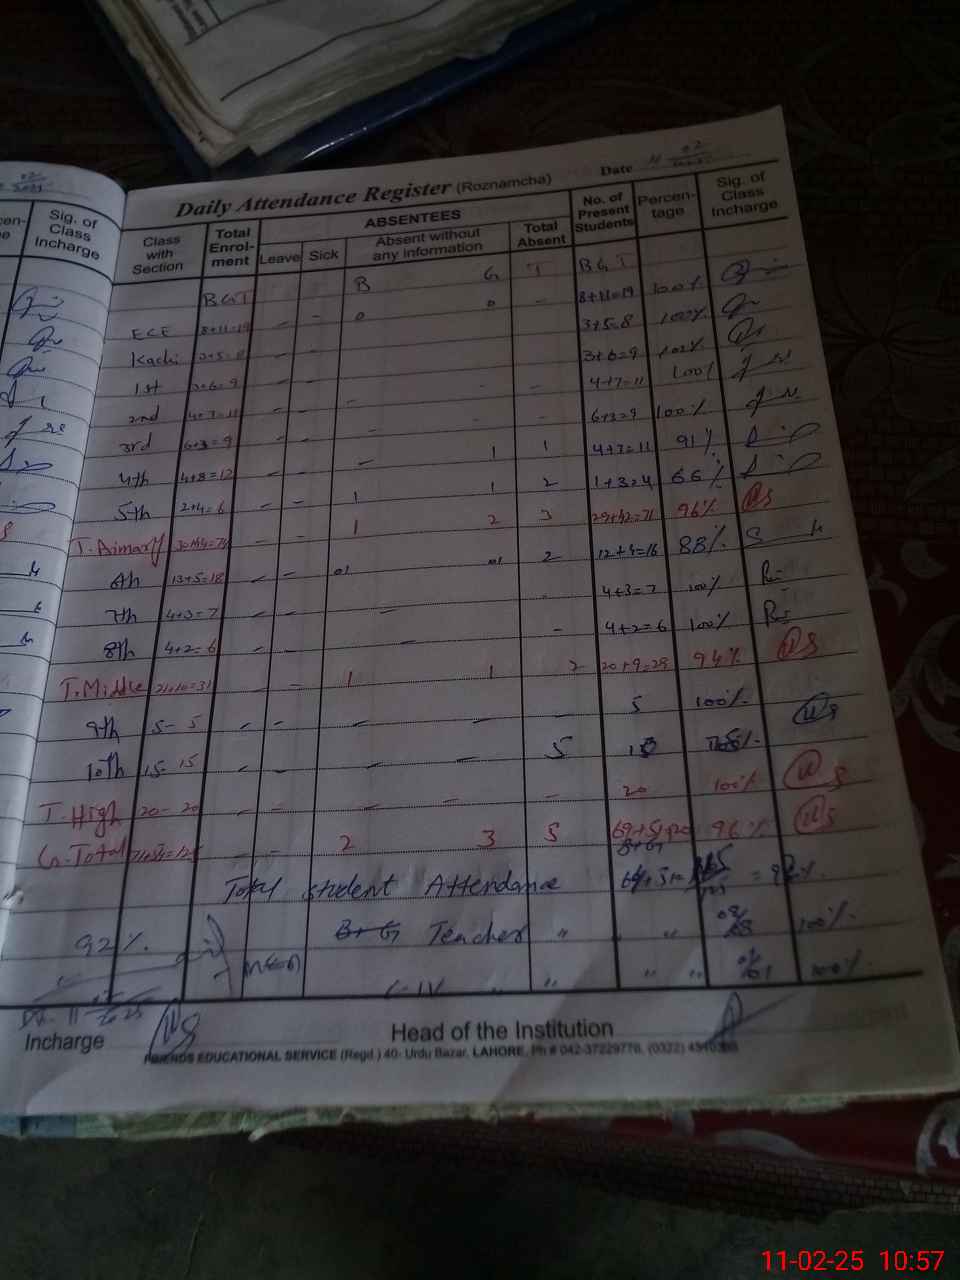 Date 11 02
Daily Attendance Register (Roznamcha)
Class with Section Total Enrol-ment ABSENTEES Leave Sick Absent without any information Total Absent No. of Present Students Percen-tage Sig. of Class Incharge
Sig. of Class Incharge
BGT B G T BGT
ECE 8+11=19 - - 0 0 - 8+11=19 100%
Kachi 3+5=8 - - 3+5=8 100%
1st 3+6=9 - - 3+6=9 100%
2nd 4+7=11 - - - - - 4+7=11 100%
3rd 6+3=9 - - - - - 6+3=9 100%
4th 4+8=12 - - - 1 1 4+7=11 91%
5th 2+4=6 - - 1 1 2 1+3=4 66%
T. Primary 30+44=74 1 2 3 29+42=71 96%
6th 13+5=18 - - 01 01 2 12+4=16 88%
7th 4+3=7 - - - 4+3=7 100%
8th 4+2=6 - - - - 4+2=6 100%
T. Middle 21+10=31 - - 1 1 2 20+9=29 94%
9th 5- 5 - - - - - 5 100%
10th 15- 15 - - - - 5
T. High 20- 20 - - - - 20 100%
G.Total - - 2 3 5 96%
Total student Attendance
92% B+G Teacher " " " 100%
C-IV " " " " 100%
Incharge
Head of the Institution
FRIENDS EDUCATIONAL SERVICE (Regd.) 40- Urdu Bazar, LAHORE, Ph # 042-37229778, (0322)
11-02-25 10:57